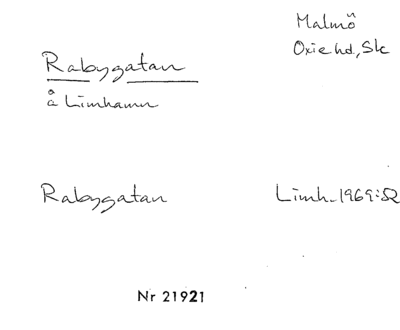 Malmö
Oxie hd, Sk
Rabygatan
å Limhamn
Rabygatan
Limh. 1969:52
Nr 21921